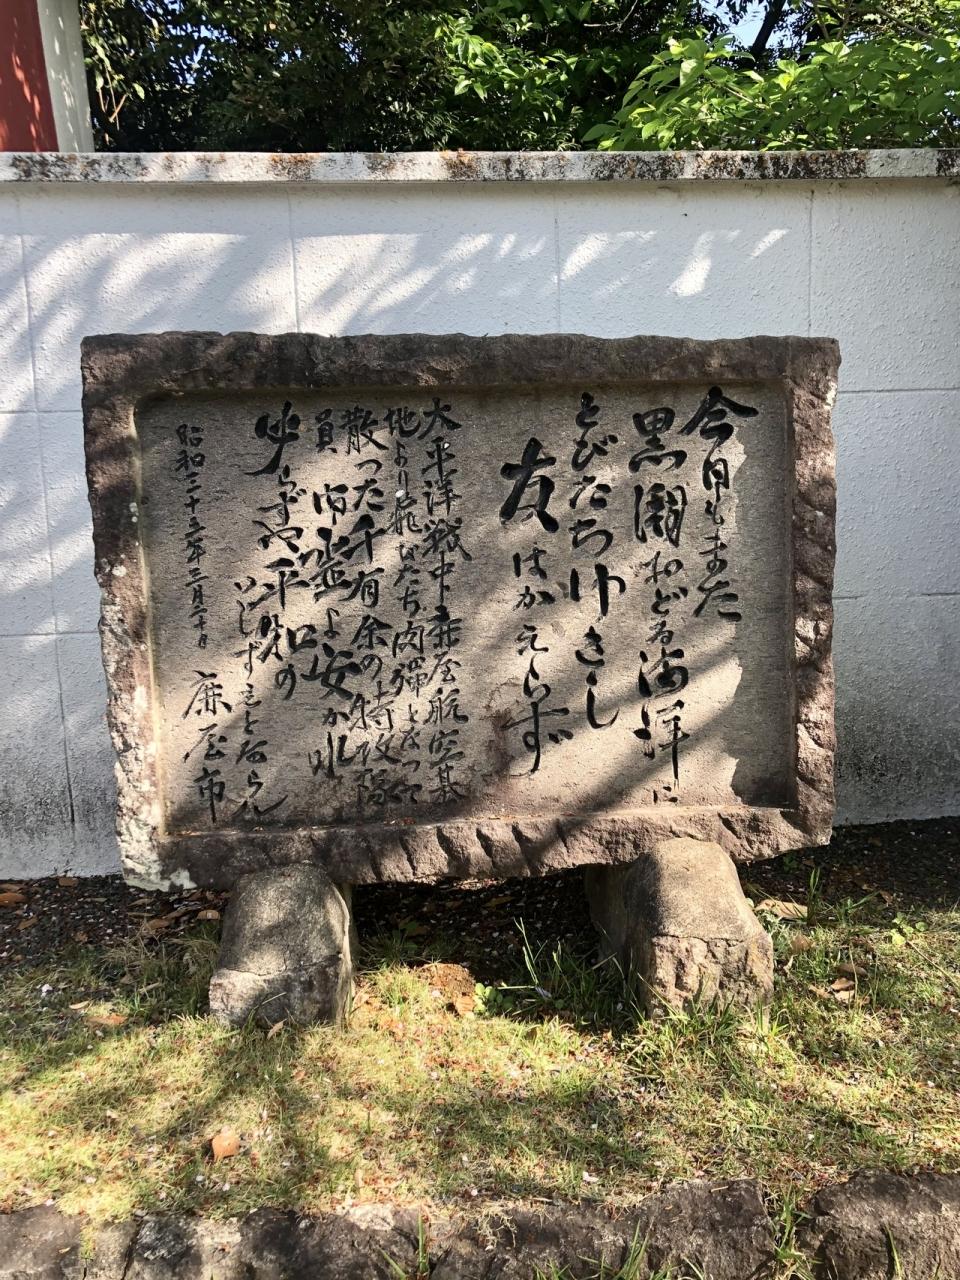 今日もまた
黒潮おどる海洋に
とびたちゆきし
友はかえらず
太平洋戦中鹿屋航空基
地より飛びたち肉彈となって
散った千有余の特攻隊
員 市盡よ安かれ
ならずや平和の
いしずえとならん
昭和三十三年三月二十日
鹿屋市